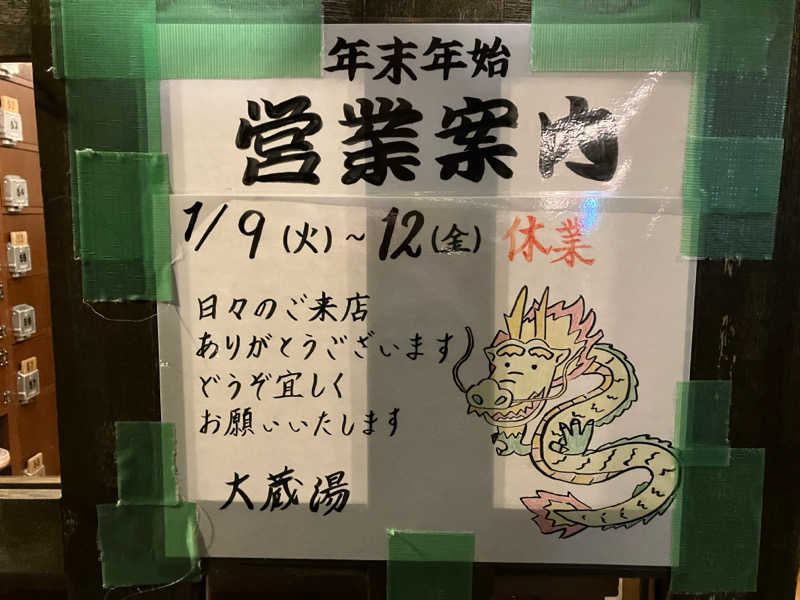 年末年始
営業案内
1/9(火)~12(金) 休業
日々のご来店
ありがとうございます
どうぞ宜しく
お願いいたします
大蔵湯